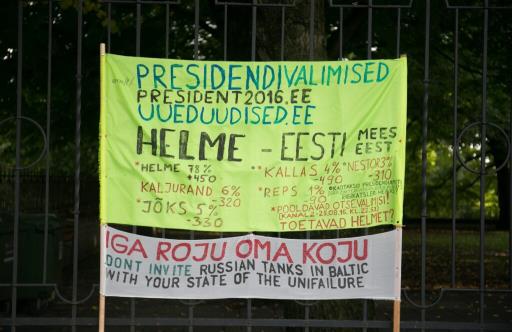 PRESIDENDIVALIMISED
PRESIDENT2016.EE
UUEUUDISED.EE
HELME - EESTI MEES EEST
*HELME 78% *450
**KALLAS 4% -490
*NESTOR 3% -310
KALJURAND 6% -320
*REPS 1% -90
*JÕKS 5% -330
*POOLDAVAD OTSEVALIMISI
TOETAVAD HELMET?
IGA ROJU OMA KOJU
DONT INVITE RUSSIAN TANKS IN BALTIC
WITH YOUR STATE OF THE UNIFAILURE